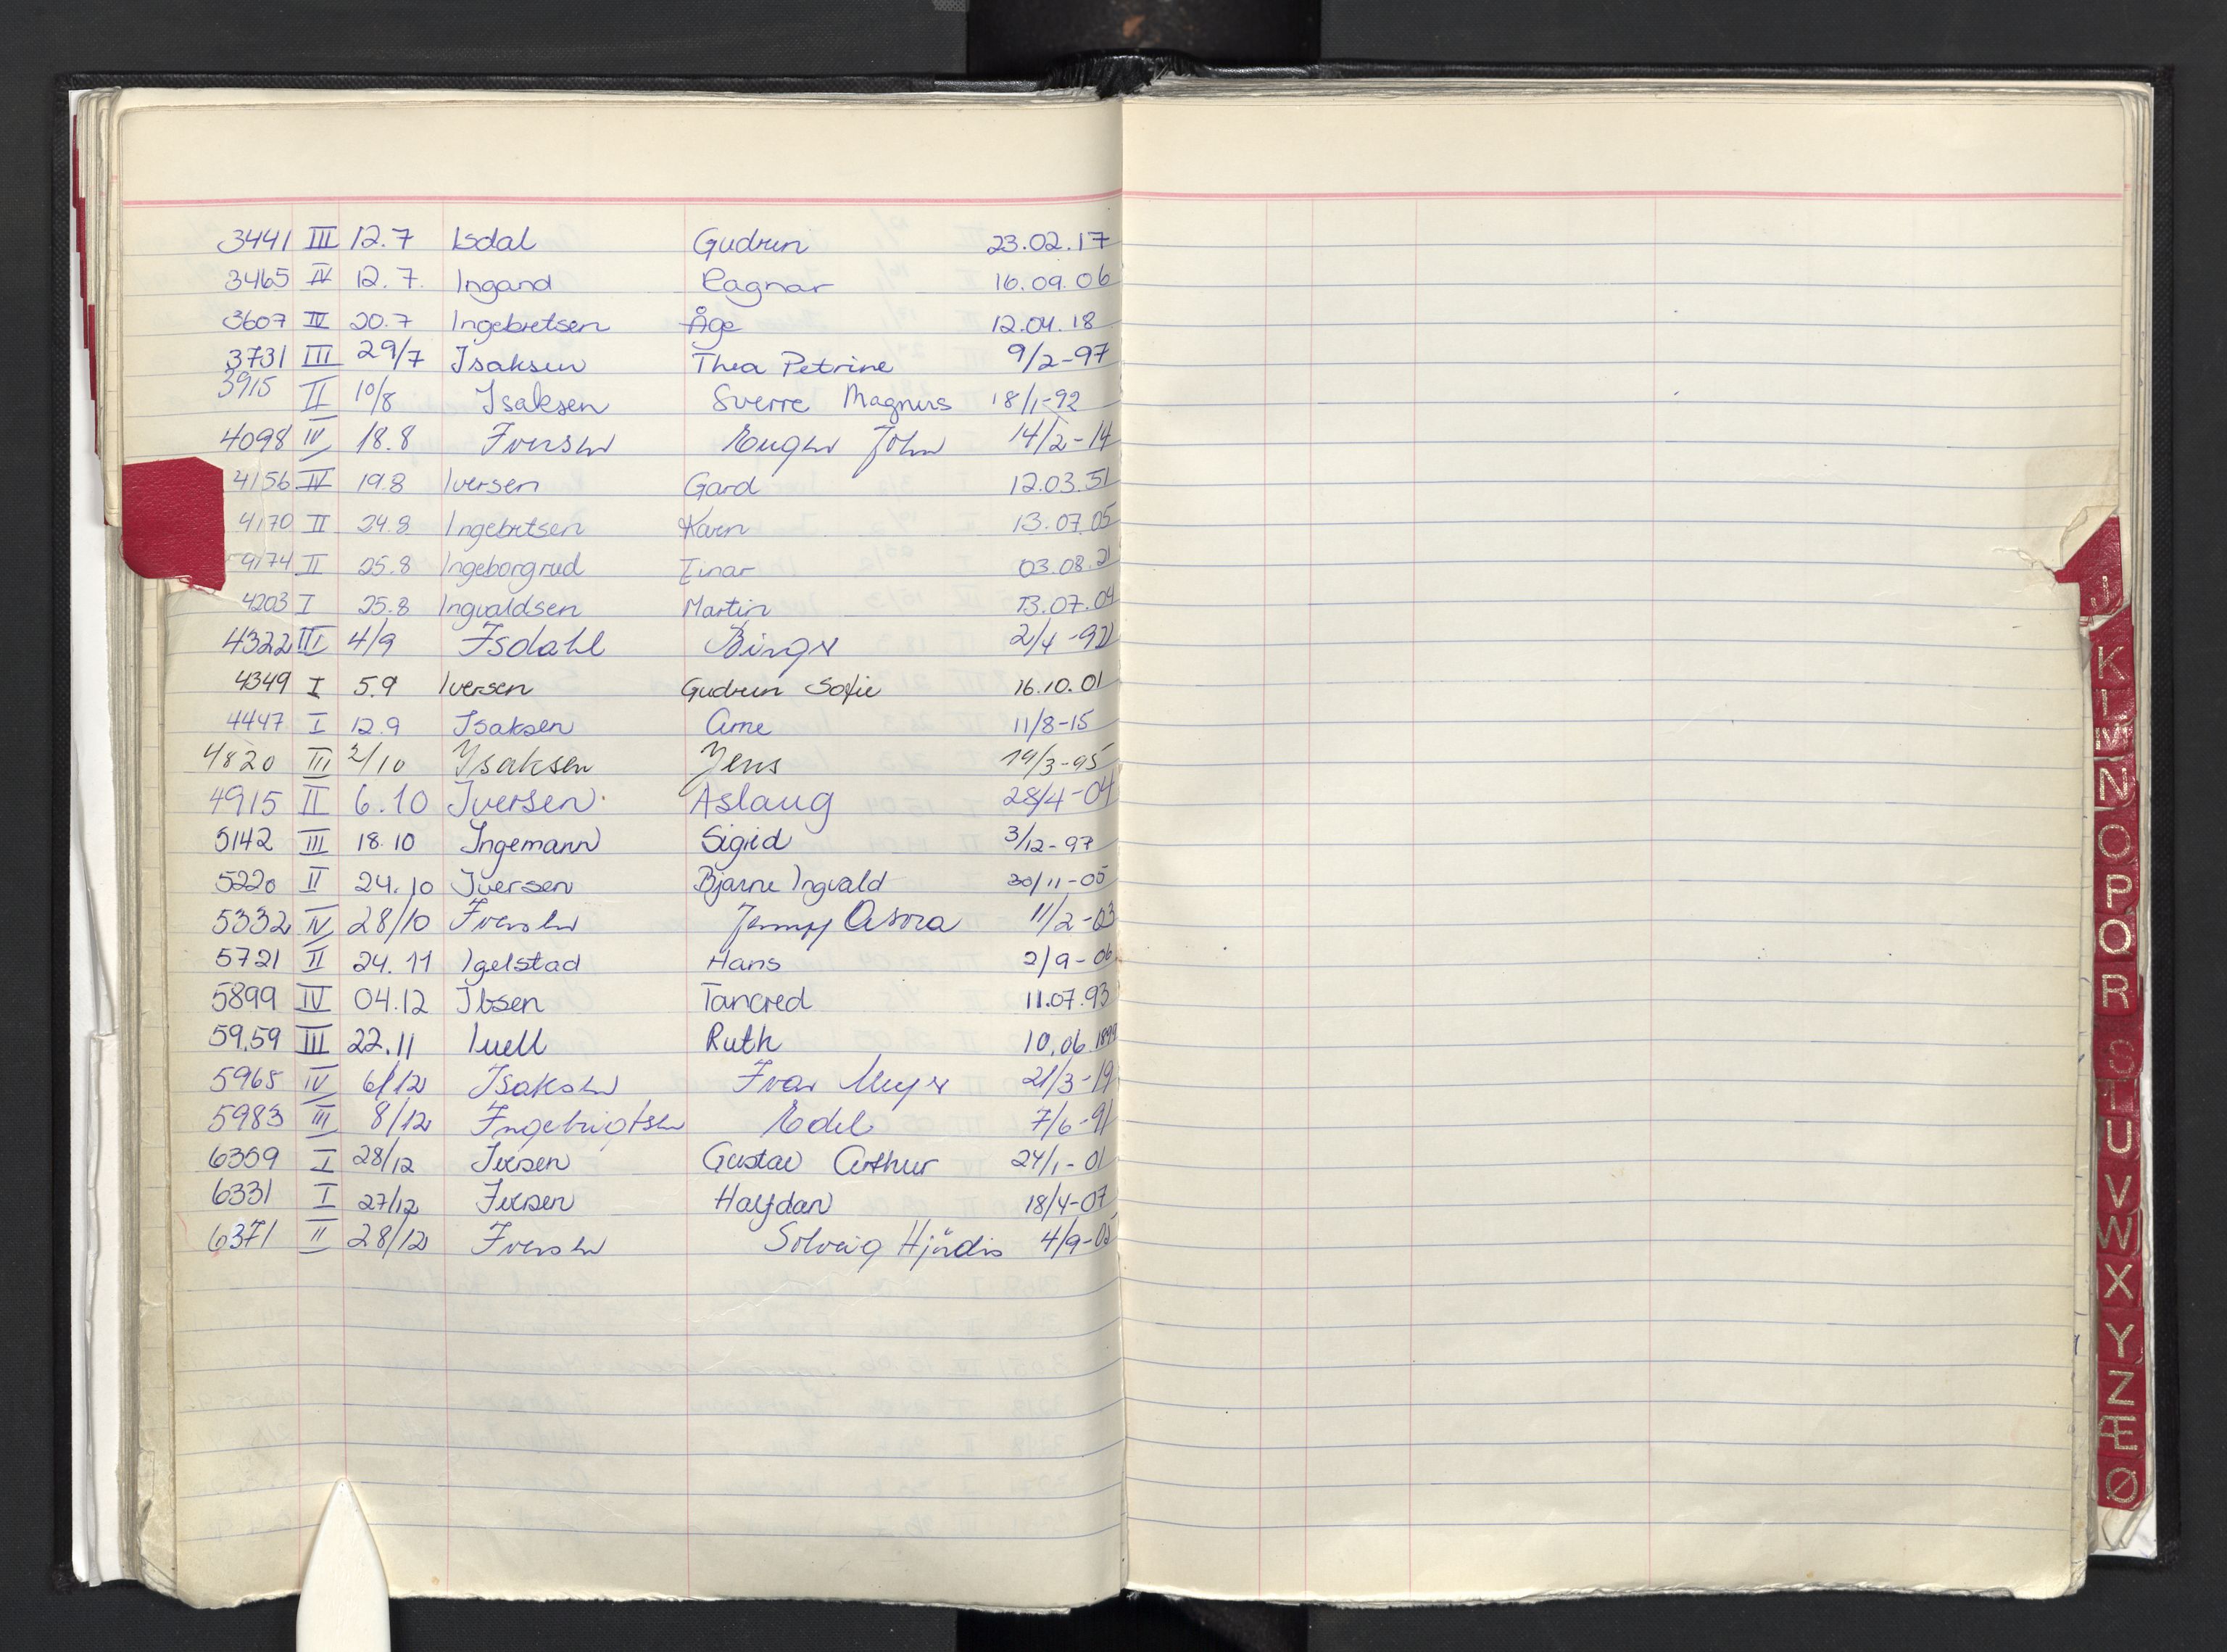 3441 III 12.7 Isdal Gudrun 23.02.17
3465 IV 12.7. Ingand Ragnar 16.09.06
3607 IV 20.7 Ingebretsen Åge 12.04.18
3731 III 29/7 Isaksen Thea Petrine 9/2-97
3915 II 10/8 Isaksen Sverre Magnus 18/1-92
4098 IV 18.8 Iversen Eugen John 14/2-14
4156 IV 19.8 Iversen Gard 12.03.51
4170 II 24.8 Ingebretsen Karen 13.07.05
9174 II 25.8 Ingeborgrud Einar 03.08.21
4203 I 25.8 Ingvaldsen Martin 13.07.04
4322 III 4/9 Isdahl Birger 2/4-92
4349 I 5.9 Iversen Gudrun Sofie 16.10.01
4447 I 12.9 Isaksen Arne 11/8-15
4820 III 2/10 Isaksen Jens 19/3-95
4915 II 6.10 Iversen Aslaug 28/4-04
5142 III 18.10 Ingemann Sigrid 3/12-97
5220 II 24.10 Iversen Bjarne Ingvald 30/11-05
5332 IV 28/10 Iversen Jenny Asora 11/2-03
5721 II 24.11 Igelstad Hans 2/9-06
5899 IV 04.12 Ibsen Tancred 11.07.93
59.59 III 22.11 Iuell Ruth 10.06.1899
5965 IV 6/12 Isaksen Ivar Meyer 21/3-19
5983 III 8/12 Ingebrigtsen Edel 7/6-91
6359 I 28/12 Iversen Gustav Arthur 24/1-01
6331 I 27/12 Iversen Halfdan 18/4-07
6371 II 28/12 Iversen Solveig Hjördis 4/9-05
J
K
L
M
N
O
P
Q
R
S
T
U
V
W
X
Y
Z
Æ
Ø